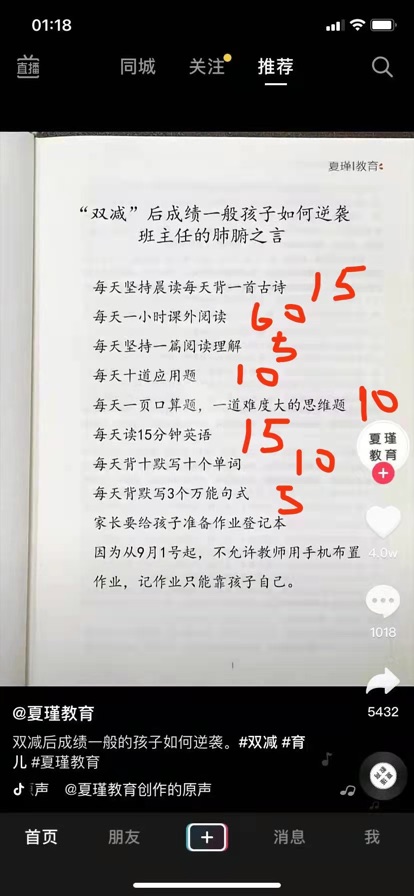 01:18
直播
同城
关注
推荐
夏瑾教育
“双减”后成绩一般孩子如何逆袭
班主任的肺腑之言
每天坚持晨读每天背一首古诗 15
每天一小时课外阅读 60
每天坚持一篇阅读理解 5
每天十道应用题 10
每天一页口算题，一道难度大的思维题 10
每天读15分钟英语 15
每天背十默写十个单词 10
每天背默写3个万能句式 5
家长要给孩子准备作业登记本
因为从9月1号起，不允许教师用手机布置
作业，记作业只能靠孩子自己。
夏瑾
教育
4.0w
1018
5432
@夏瑾教育
双减后成绩一般的孩子如何逆袭。#双减 #育
儿 #夏瑾教育
声 @夏瑾教育创作的原声
首页
朋友
消息
我